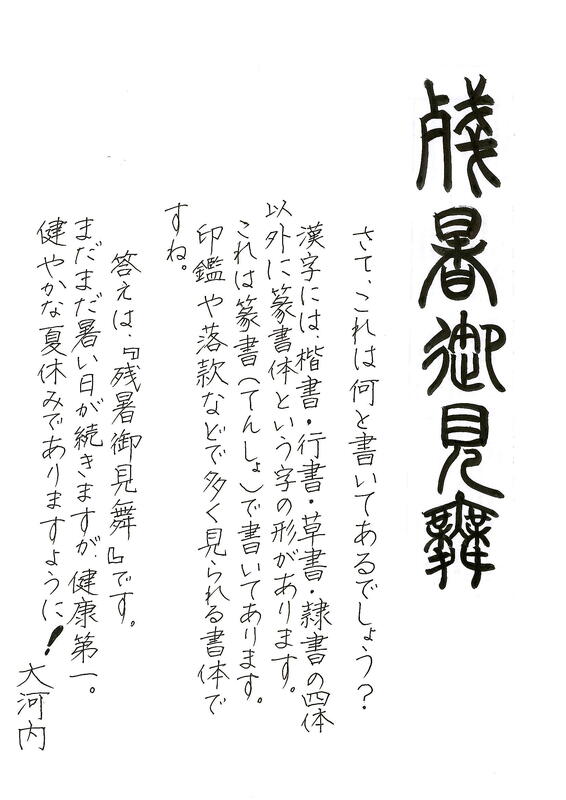 残暑御見舞
さて、これは何と書いてあるでしょう？
漢字には、楷書・行書・草書・隷書の四体
以外に篆書体という字の形があります。
これは篆書（てんしょ）で書いてあります。
印鑑や落款などで多く見られる書体で
すね。
答えは、『残暑御見舞』です。
まだまだ暑い日が続きますが、健康第一。
健やかな夏休みでありますように！
大河内